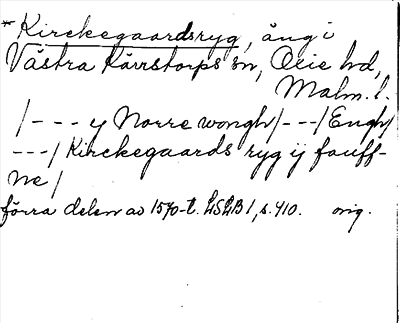 * Kirckegaardsryg, äng i
Västra Kärrstorps sn, Oxie hd,
Malm. l.
/--- y Norre wongh/---/Engh/
---/Kirckegaards ryg ij fauff-
ne/
förra delen av 1570-t. LSLB 1, s. 410. orig.